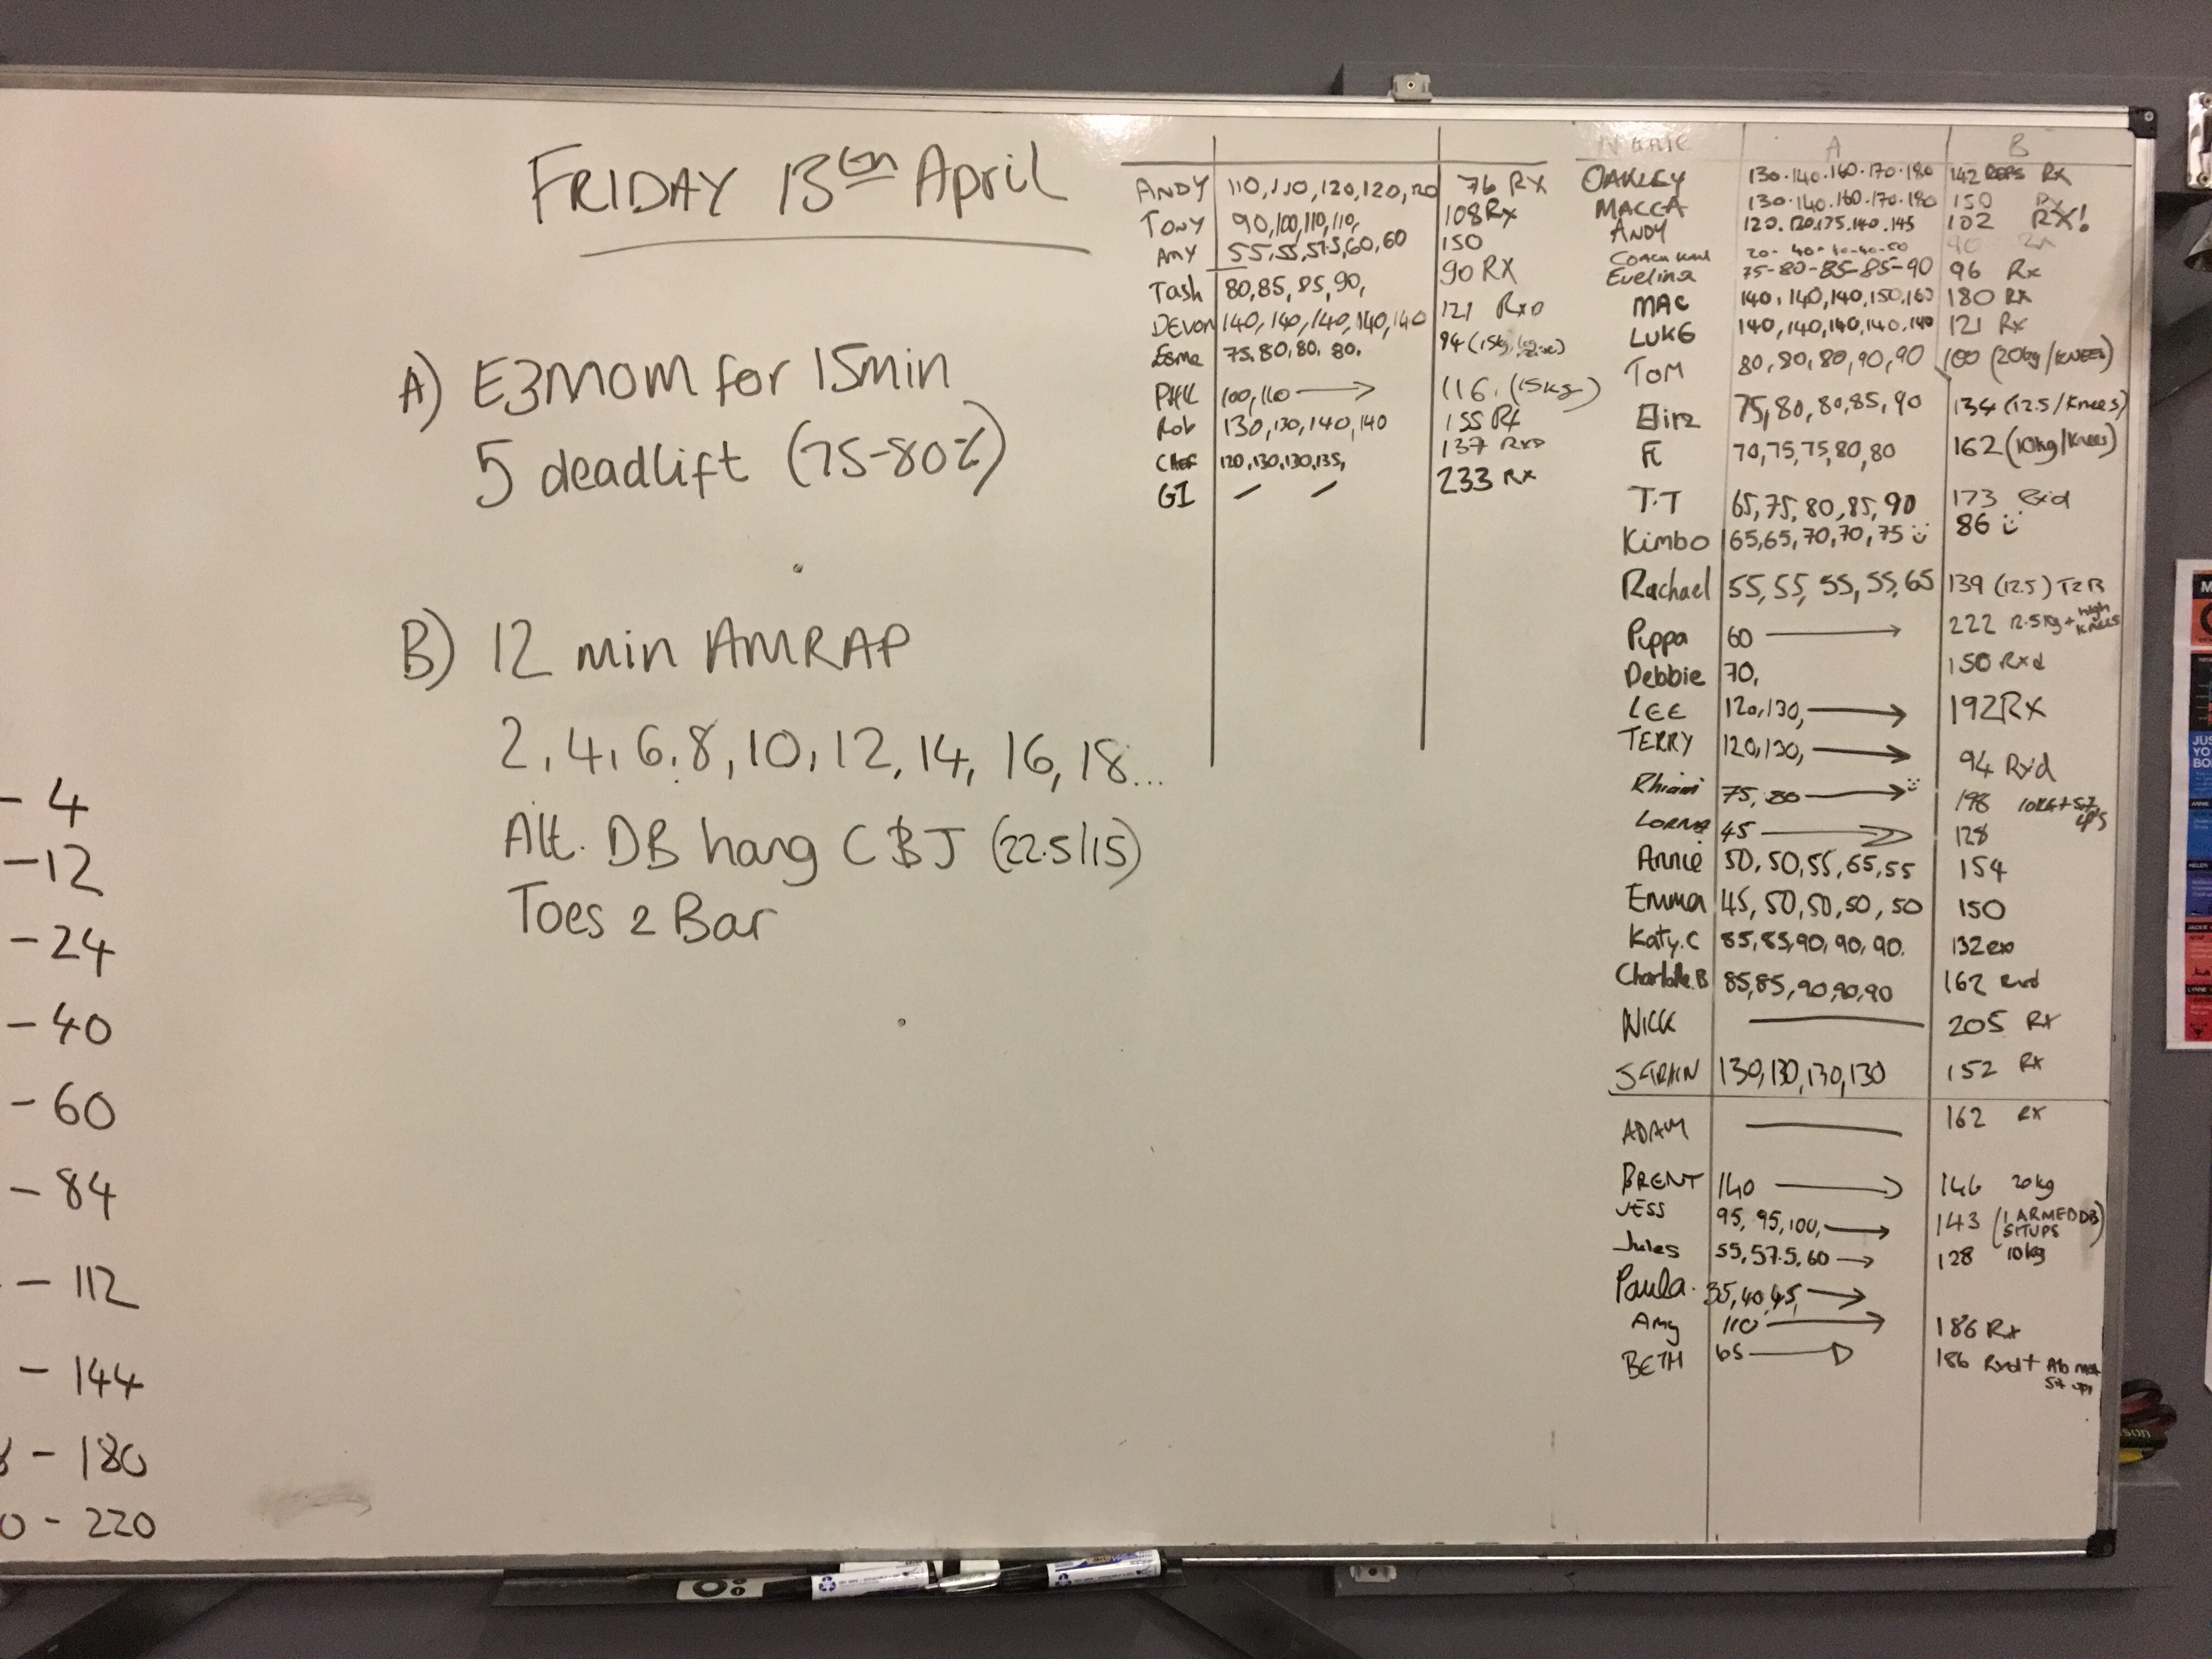 FRIDAY 13th April
A) E3MOM for 15min
5 deadlift (75-80%)
B) 12 min AMRAP
2, 4, 6, 8, 10, 12, 14, 16, 18...
Alt. DB hang C&J (22.5/15)
Toes 2 Bar
- 4
- 12
- 24
- 40
- 60
- 84
- 112
- 144
- 180
0 - 220
ANDY 110, 110, 120, 120, 120 76 RX
TONY 90, 100, 110, 110, 108 Rx
Amy 55, 55, 57.5, 60, 60 150
Tash 80, 85, 85, 90, 90 RX
DEvon 140, 140, 140, 140, 140 121 RxD
Esme 75, 80, 80, 80. 94 (15kg
PHIL 100, 110 → 116. (15kg)
Rob 130, 130, 140, 140 155 RX
CHEF 120, 130, 130, 135, 137 RxD
GI / / 233 RX
NAME A B
OAKLEY 130.140.160.170.180 142 REPS RX
MACCA 130.140.160.170.180 150 Rx
ANDY 120. 120. 140. 145 102 RX!
Coach 90 Rx
Evelina 75-80-85-85-90 96 Rx
MAC 140, 140, 140, 150, 160 180 RX
LUKE 140, 140, 140, 140, 140 121 Rx
TOM 80, 80, 80, 90, 90 100 (20kg/KNEES)
75, 80, 80, 85, 90 134 (12.5/Knees)
70, 75, 75, 80, 80 162 (10kg/Knees)
T.T 65, 75, 80, 85, 90 173 Rx'd
Kimbo 65, 65, 70, 70, 75 86
Rachael 55, 55, 55, 55, 65 139 (12.5) T2B
Pippa 60 → 222 12.5kg + high knees
Debbie 70, 150 Rxd
LEE 120, 130, → 192 RX
TERRY 120, 130, → 94 Rx'd
75, 80 → 198 10KG + sit ups
LORNA 45 → 128
Annie 50, 50, 55, 65, 55 154
Emma 45, 50, 50, 50, 50 150
Katy.C 85, 85, 90, 90, 90. 132 RxD
Charlotte.B 85, 85, 90, 90, 90 162 Rxd
NICK — 205 RX
130, 130, 130, 130 152 RX
ADAM — 162 RX
BRENT 140 → 146 20kg
JESS 95, 95, 100, → 143 (1 ARMED DB SITUPS)
Jules 55, 57.5, 60 → 128 10kg
Paula. 35, 40, 45, →
Amy 110 → 186 Rx
BETH 65 → 186 Rxd + Ab mat sit ups